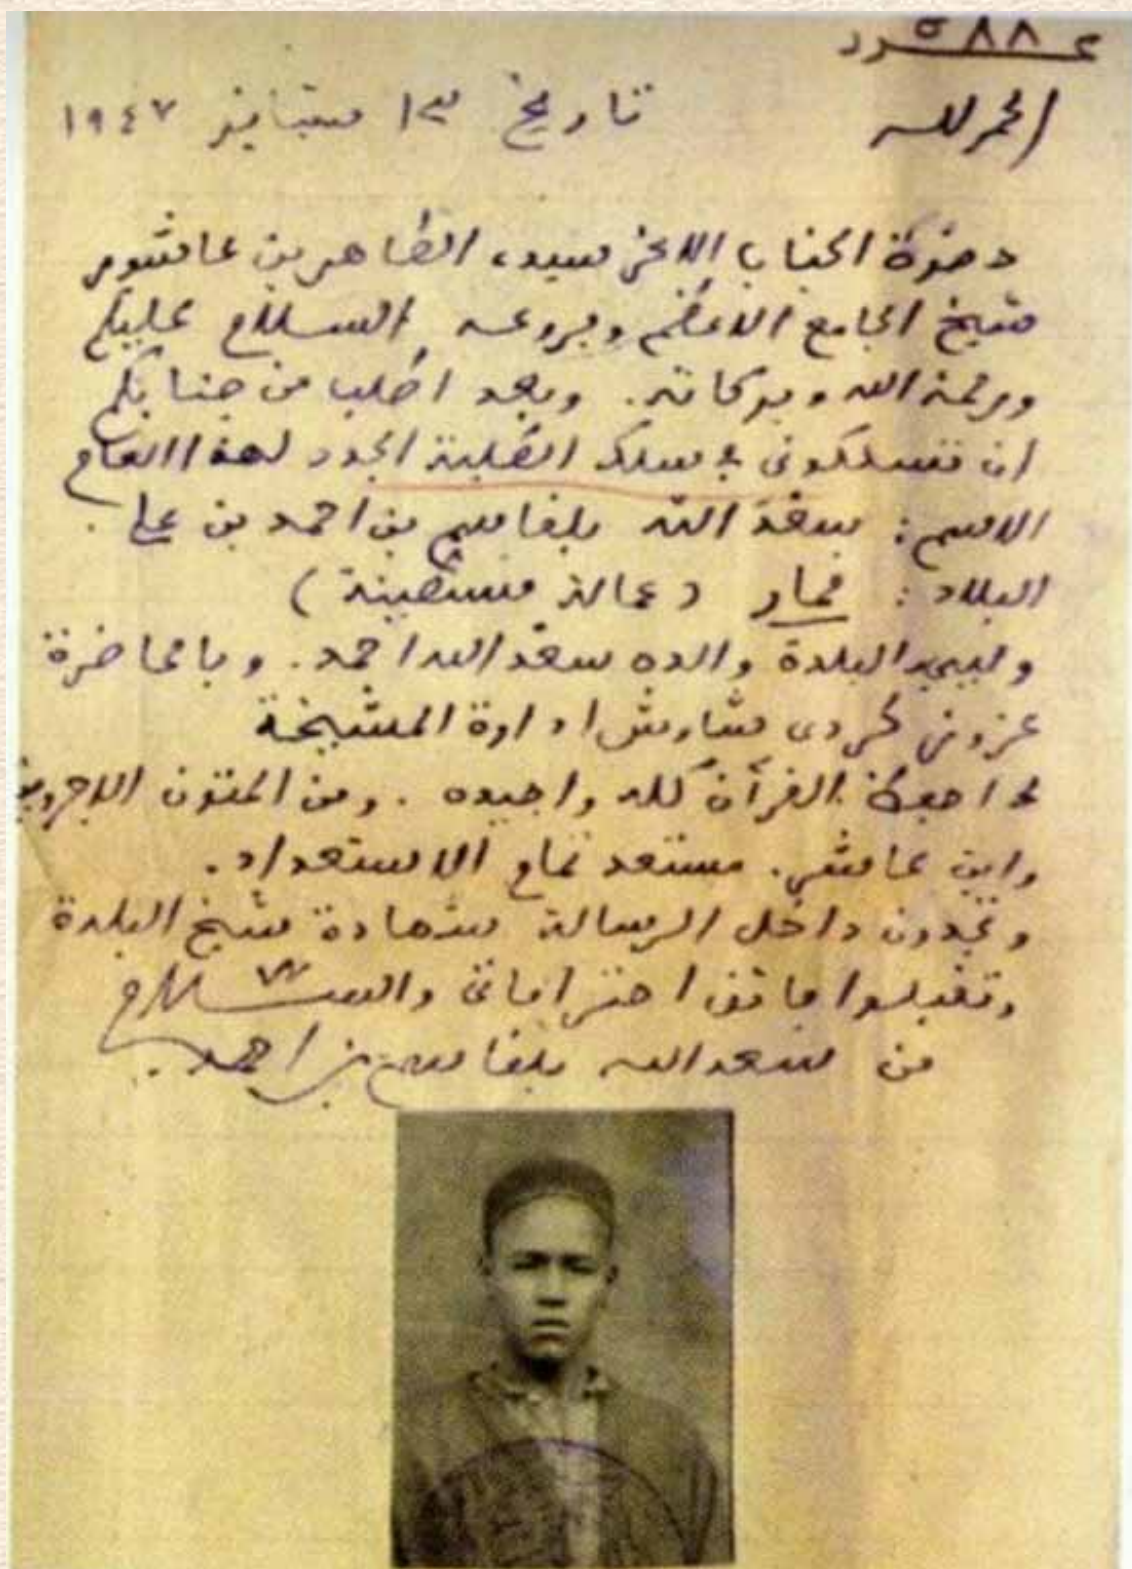 عدد ٥٨٨
الحمد لله تاريخ ١٣ سبتانبر ١٩٤٧
حضرة الجناب الاعز سيدي الطاهر بن عاشور
شيخ الجامع الاعظم وفروعه السلام عليكم
ورحمة الله وبركاته. وبعد اطلب من جنابكم
ان تسلكوني في سلك الطلبة الجدد لهذا العام
الاسم: سعد الله بلقاسم بن احمد بن علي
البلاد: قمار (عمالة قسنطينة)
والده سعد الله احمد. وبالحاضرة
شاوش ادارة المشيخة
القرآن كله واجيده. ومن المتون الاجرومية
وابن عاشر. مستعد تمام الاستعداد.
وتجدون داخل الرسالة شهادة شيخ البلدة
وتقبلوا فائق احتراماتي والسلام
من سعد الله بلقاسم بن احمد